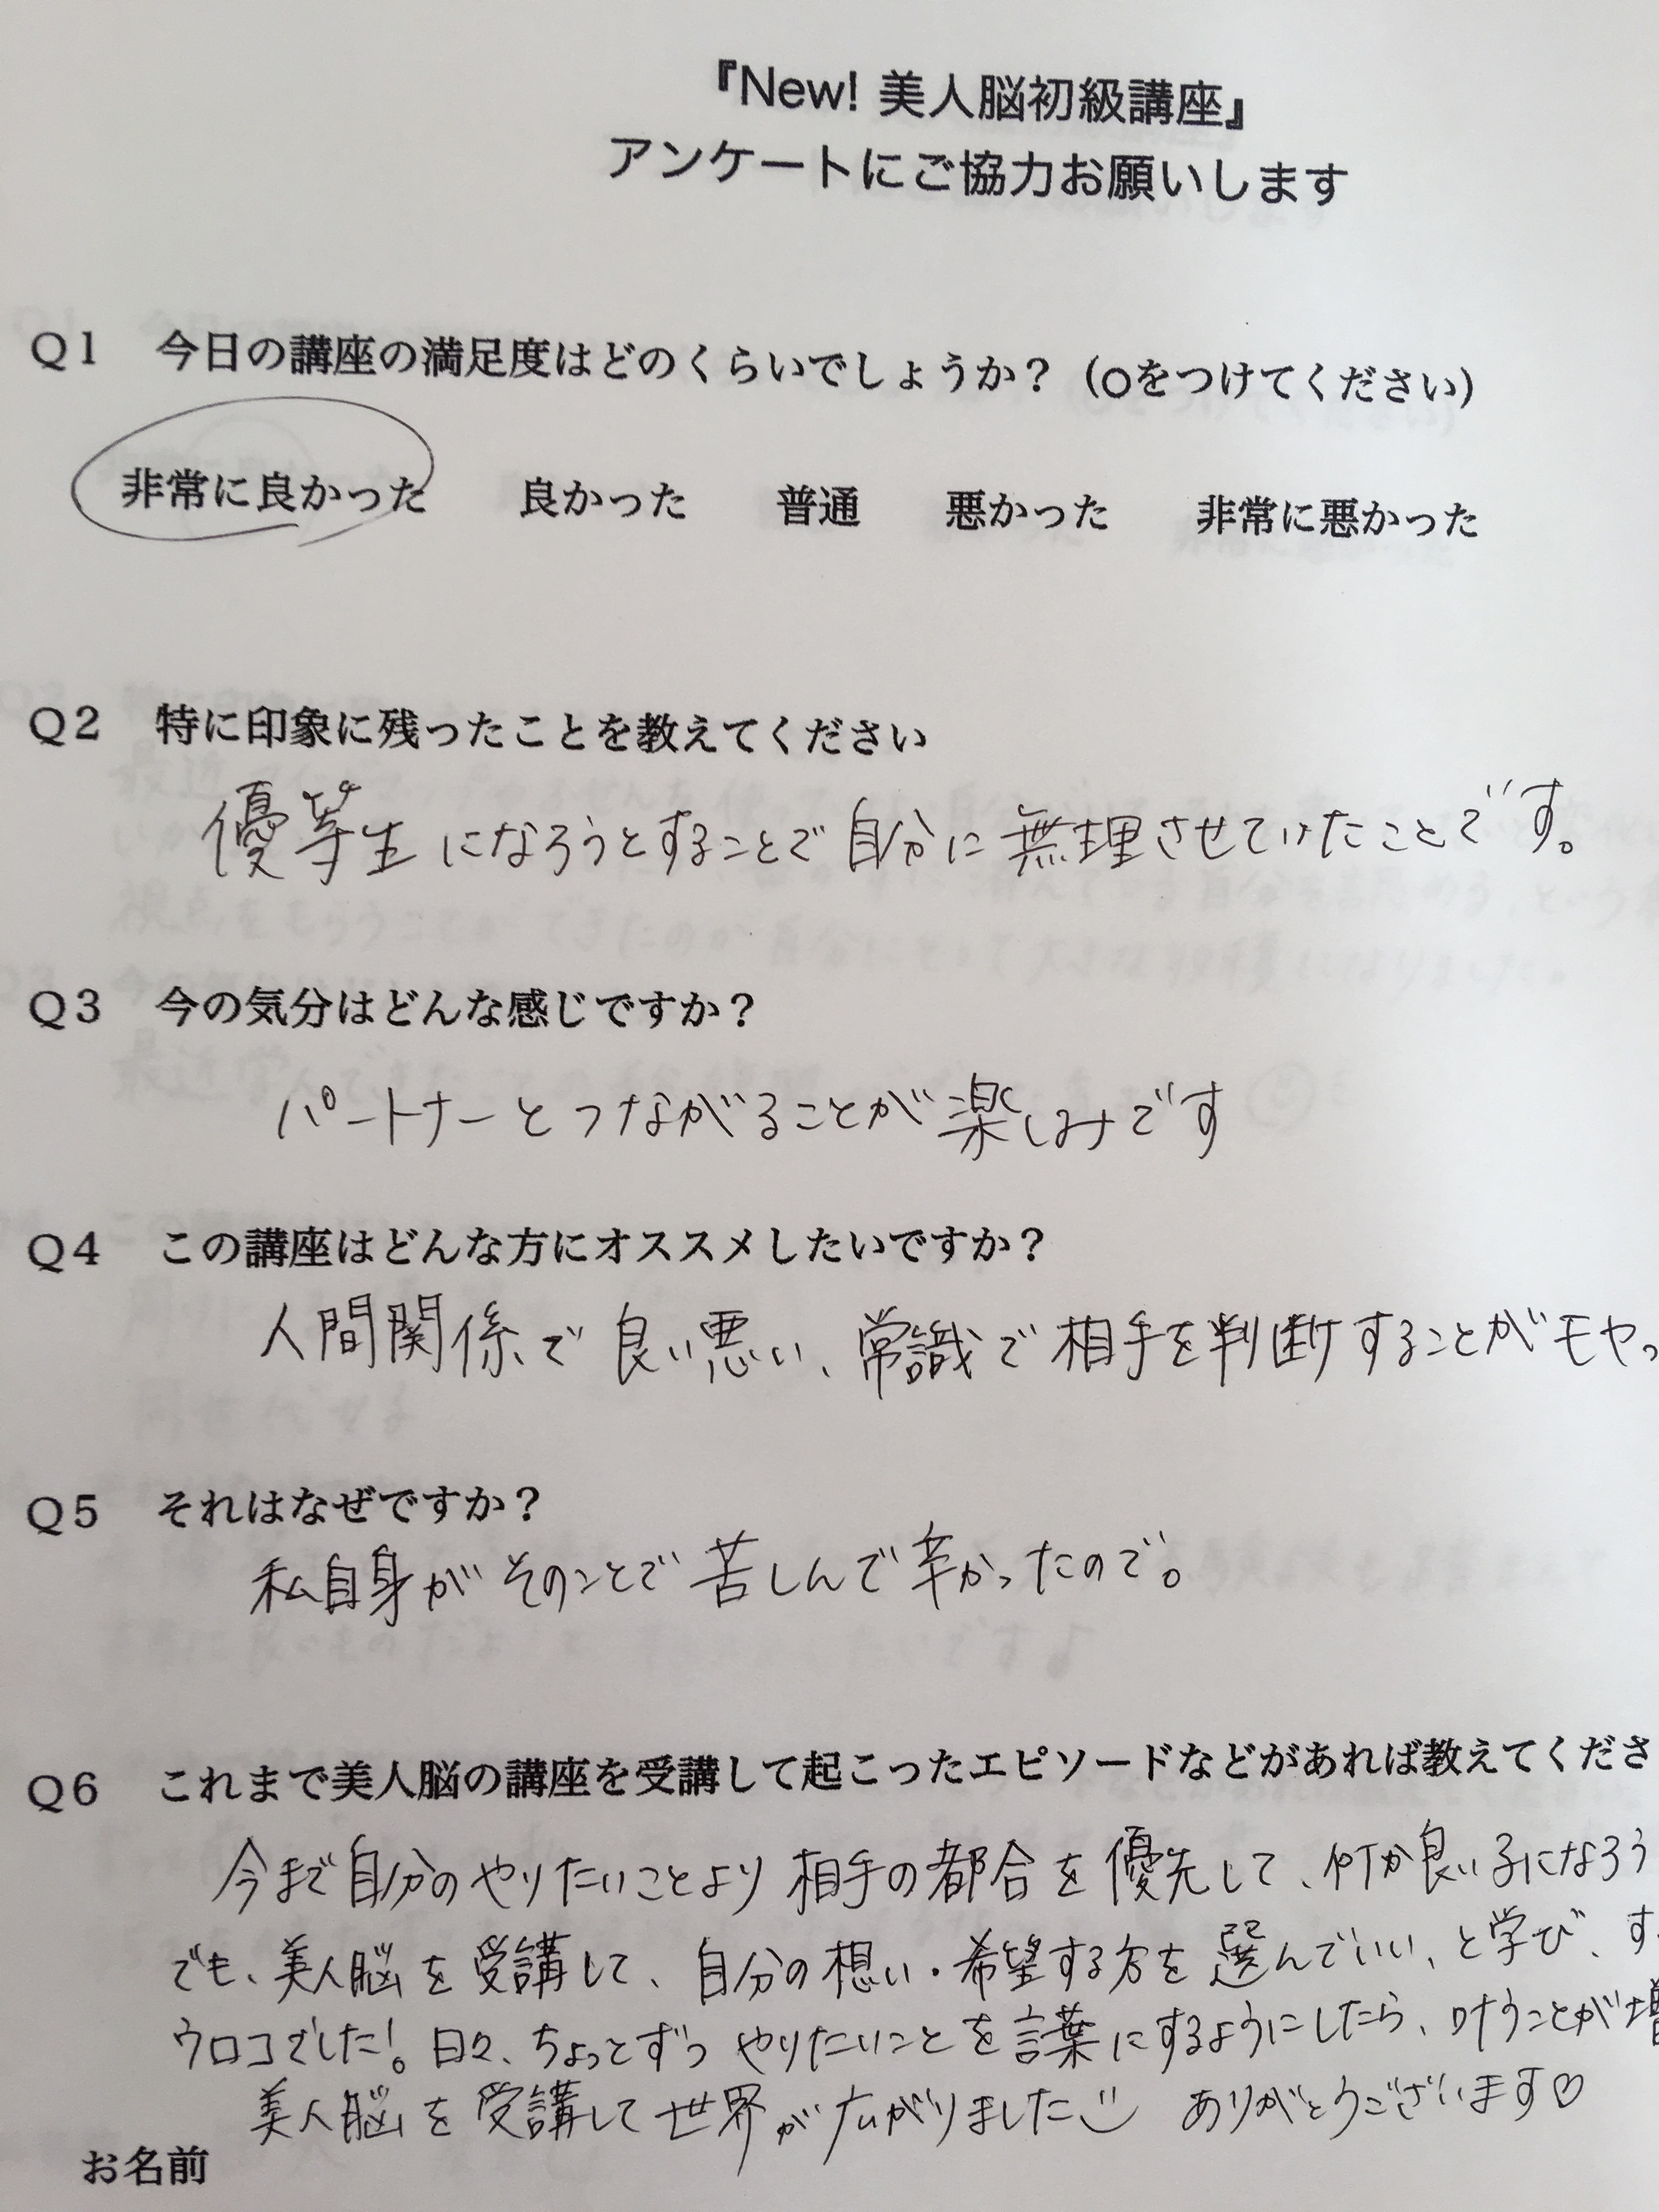 『New! 美人脳初級講座』
アンケートにご協力お願いします
Q1 今日の講座の満足度はどのくらいでしょうか？（○をつけてください）
非常に良かった 良かった 普通 悪かった 非常に悪かった
Q2 特に印象に残ったことを教えてください
優等生になろうとすることで自分に無理させていたことです。
Q3 今の気分はどんな感じですか？
パートナーとつながることが楽しみです
Q4 この講座はどんな方にオススメしたいですか？
人間関係で良い悪い、常識で相手を判断することがモヤっ
Q5 それはなぜですか？
私自身がそのことで苦しんで辛かったので。
Q6 これまで美人脳の講座を受講して起こったエピソードなどがあれば教えてくださ
今まで自分のやりたいことより相手の都合を優先して、何か良い子になろう
でも、美人脳を受講して、自分の想い・希望する方を選んでいい、と学び、す
ウロコでした！。日々、ちょっとずつやりたいことを言葉にするようにしたら、叶うことが増
美人脳を受講して世界が広がりました ありがとうございます♡
お名前